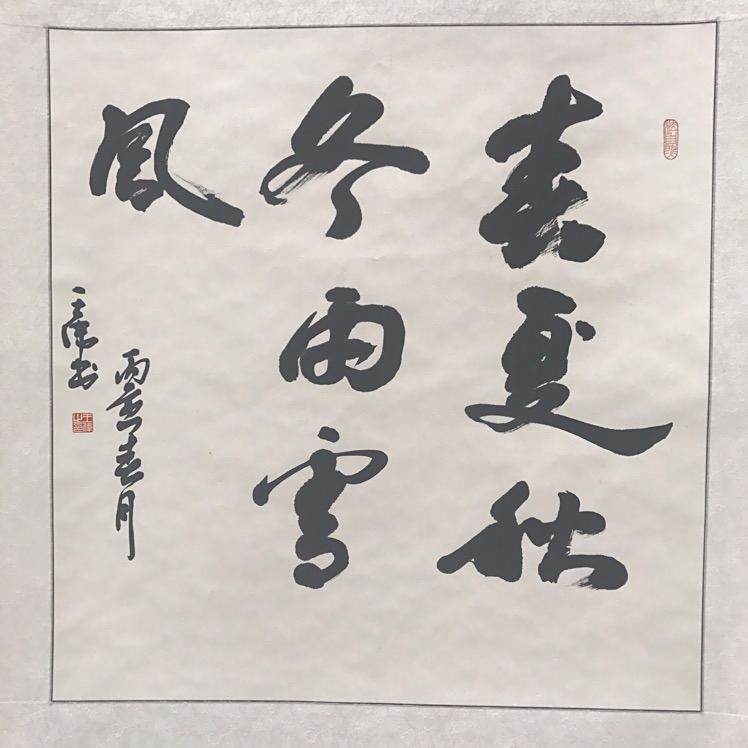 春夏秋
冬雨雪
風
丙寅春月
王偉書